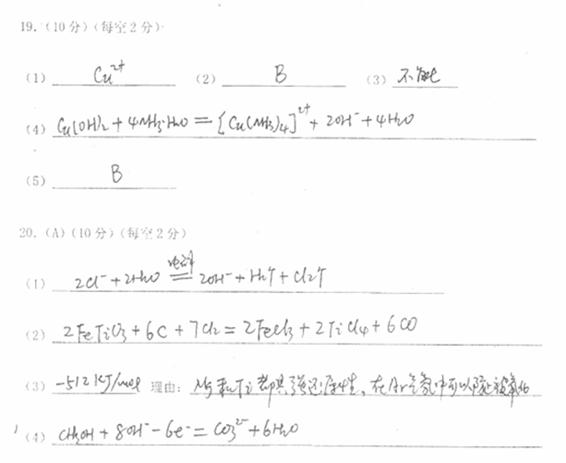 19.(10分)(每空2分)
(1) Cu²⁺ (2) B (3) 不能
(4) Cu(OH)₂ + 4NH₃·H₂O = [Cu(NH₃)₄]²⁺ + 2OH⁻ + 4H₂O
(5) B
20.(A)(10分)(每空2分)
(1) 2Cl⁻ + 2H₂O 电解 = 2OH⁻ + H₂↑ + Cl₂↑
(2) 2FeTiO₃ + 6C + 7Cl₂ = 2FeCl₃ + 2TiCl₄ + 6CO
(3) -512 KJ/mol 理由: Mg和Ti都具强还原性,在Ar气氛中可以防被氧化
(4) CH₃OH + 8OH⁻ - 6e⁻ = CO₃²⁻ + 6H₂O